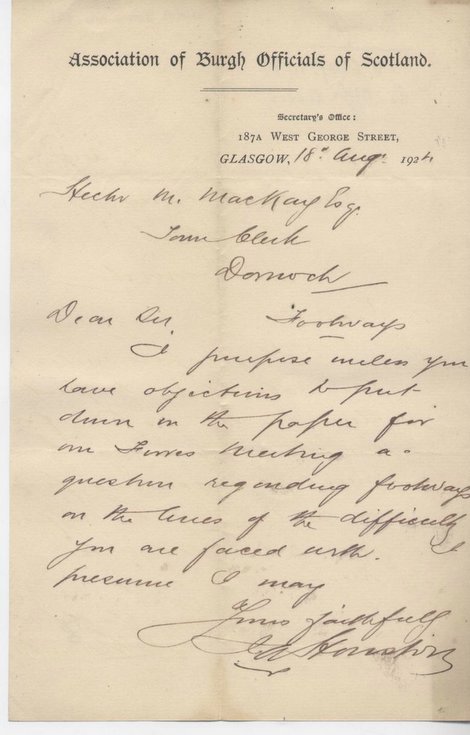 Association of Burgh Officials of Scotland.
Secretary's Office:
187A WEST GEORGE STREET,
GLASGOW, 18th Augt 1924
Hector M. MacKay Esq.
Town Clerk
Dornoch
Dear Sir, Footways
I purpose unless you
have objections to put
down in the paper for
our Forres meeting a
question regarding footways
on the lines of the difficulty
you are faced with. I
presume I may
Yours faithfully
Houston